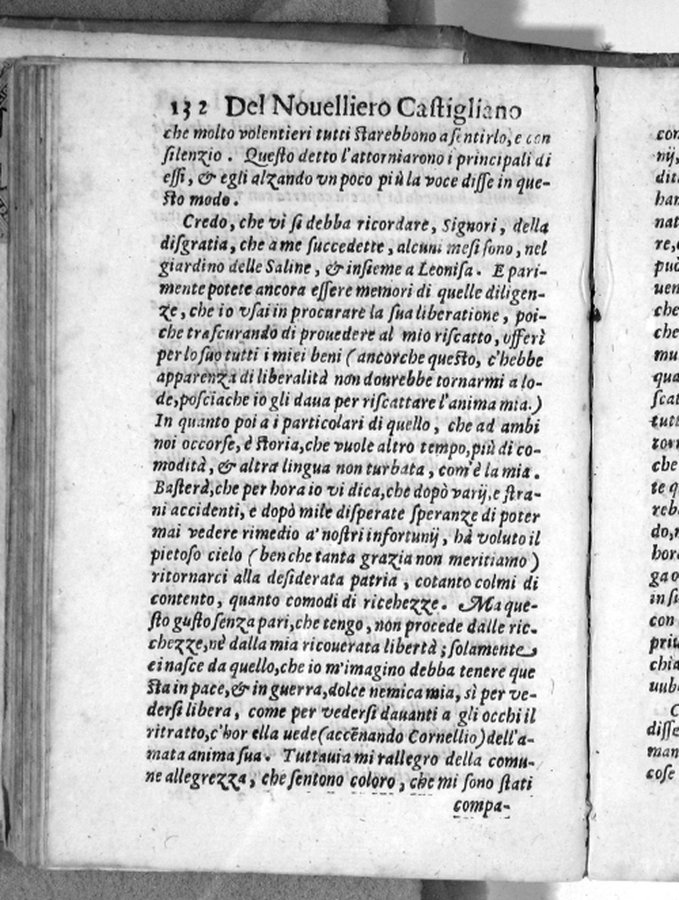 132 Del Nouelliero Castigliano
che molto volentieri tutti starebbono a sentirlo, e con
silenzio. Questo detto l'attorniarono i principali di
essi, & egli alzando vn poco più la voce disse in que-
sto modo.
Credo, che vi si debba ricordare, Signori, della
disgratia, che a me succedette, alcuni mesi sono, nel
giardino delle Saline, & insieme a Leonisa. E pari-
mente potete ancora essere memori di quelle diligen-
ze, che io vsai in procurare la sua liberatione, poi-
che trascurando di prouedere al mio riscatto, offerì
per lo suo tutti i miei beni (ancorche questo, c'hebbe
apparenza di liberalità non dourebbe tornarmi a lo-
de, posciache io gli daua per riscattare l'anima mia.)
In quanto poi a i particolari di quello, che ad ambi
noi occorse, è storia, che vuole altro tempo, più di co-
modità, & altra lingua non turbata, com'è la mia.
Basterà, che per hora io vi dica, che dopò varij, e stra-
ni accidenti, e dopò mile disperate speranze di poter
mai vedere rimedio a' nostri infortunij, hà voluto il
pietoso cielo (ben che tanta grazia non meritiamo)
ritornarci alla desiderata patria, cotanto colmi di
contento, quanto comodi di ricehezze. Ma que-
sto gusto senza pari, che tengo, non procede dalle ric-
chezze, nè dalla mia ricouerata libertà; solamente
ei nasce da quello, che io m'imagino debba tenere que
sta in pace, & in guerra, dolce nemica mia, sì per ve-
dersi libera, come per vedersi dauanti a gli occhi il
ritratto, c'hor ella uede (accēnando Cornellio) dell'a-
mata anima sua. Tuttauia mi rallegro della comu-
ne allegrezza, che sentono coloro, che mi sono stati
compa-